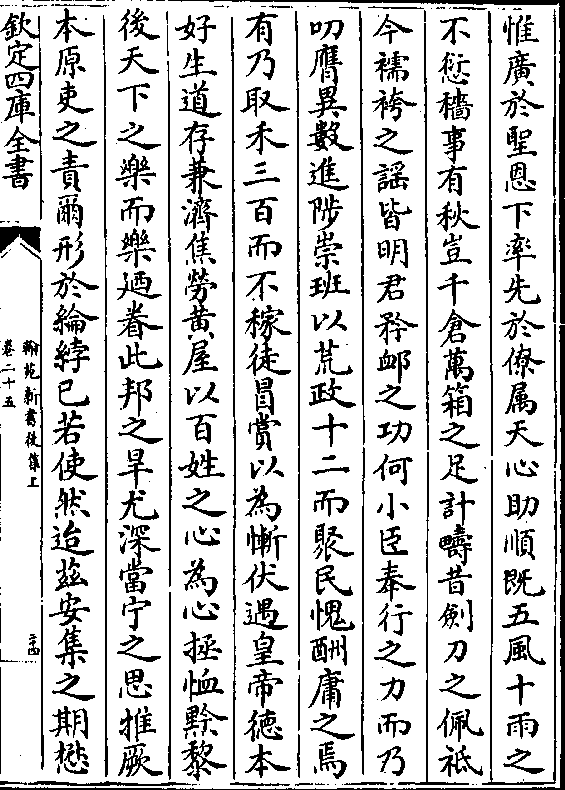 惟廣於聖恩下率先於僚属天心助順既五風十雨之
不愆穡事有秋豈千倉萬箱之足計疇昔劍刀之佩祗
今襦袴之謡皆明君矜䘏之功何小臣奉行之力而乃
叨膺異數進陟崇班以荒政十二而聚民愧酬庸之焉
有乃取禾三百而不稼徒冒賞以為慚伏遇皇帝徳本
好生道存兼濟焦勞黄屋以百姓之心為心拯恤黔黎
後天下之樂而樂廼眷此邦之旱尤深當宁之思推厥
本原吏之責爾形於綸綍已若使然迨兹安集之期愁
欽定四庫全書
翰苑新書後集上
卷二十五
二十四